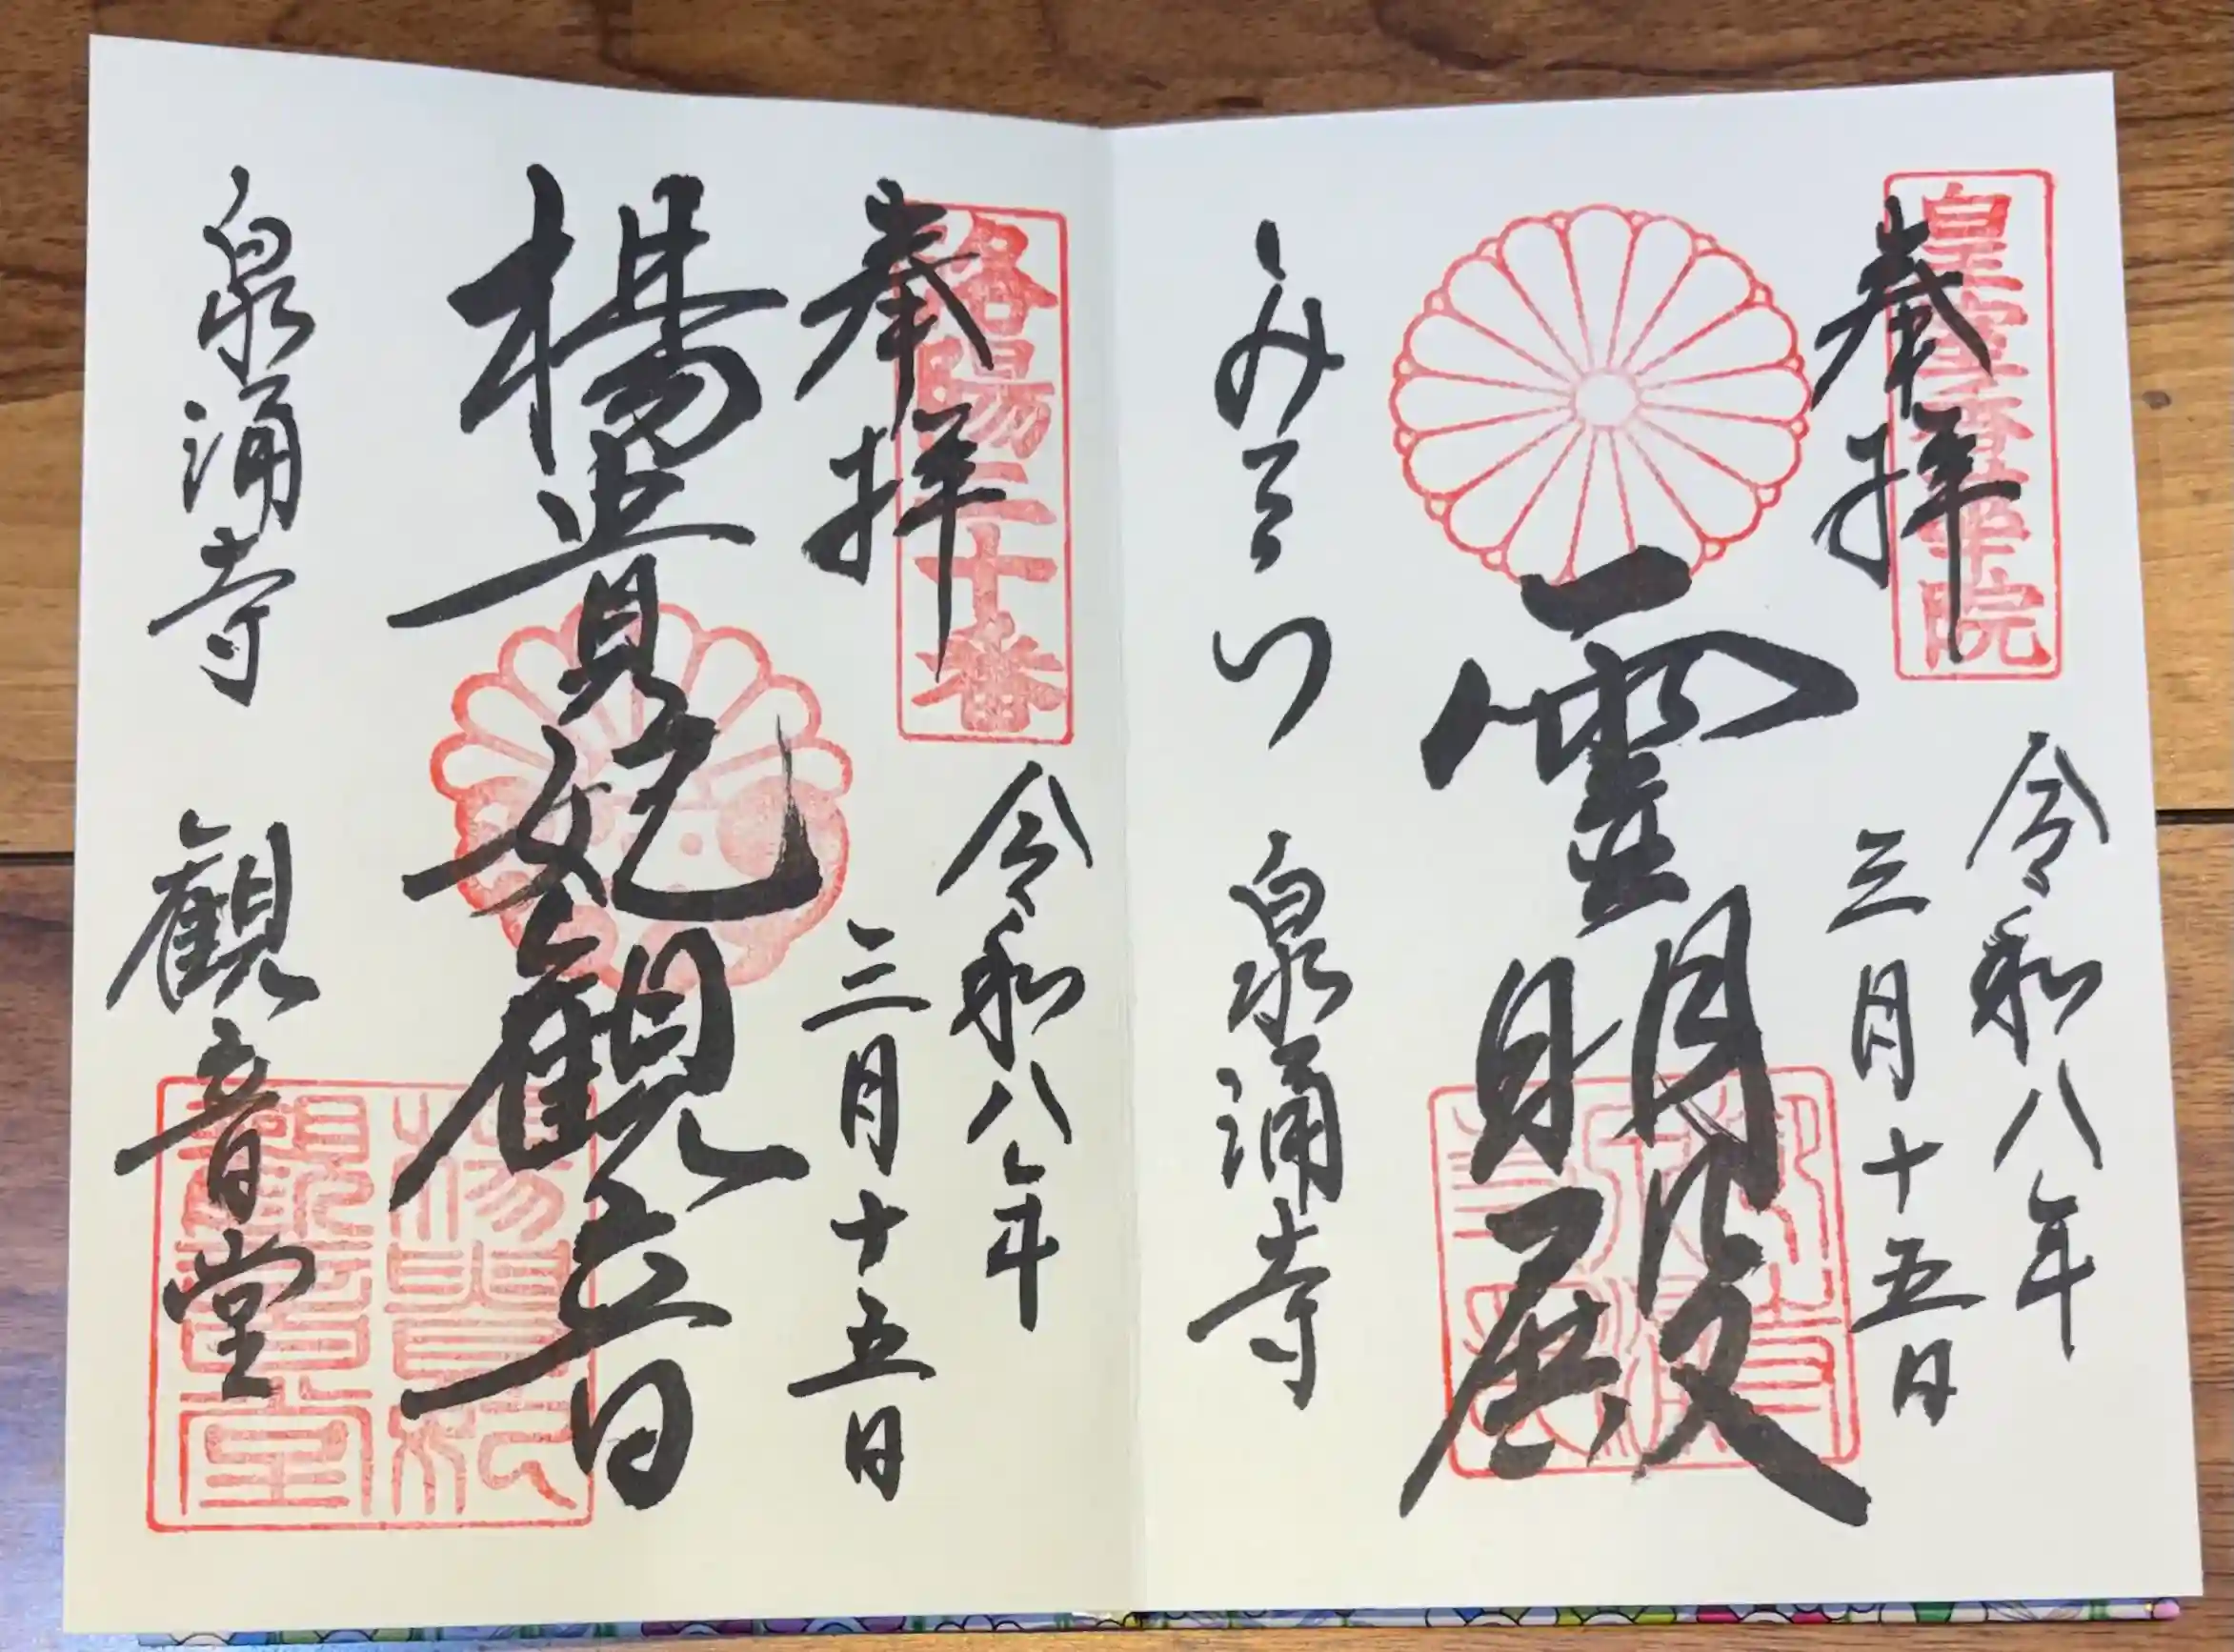 皇室香華院
奉拝
令和八年
三月十五日
霊明殿
みてら 泉涌寺
洛陽二十番
奉拝
令和八年
三月十五日
楊貴妃観音
泉涌寺 観音堂
楊貴妃
觀音堂